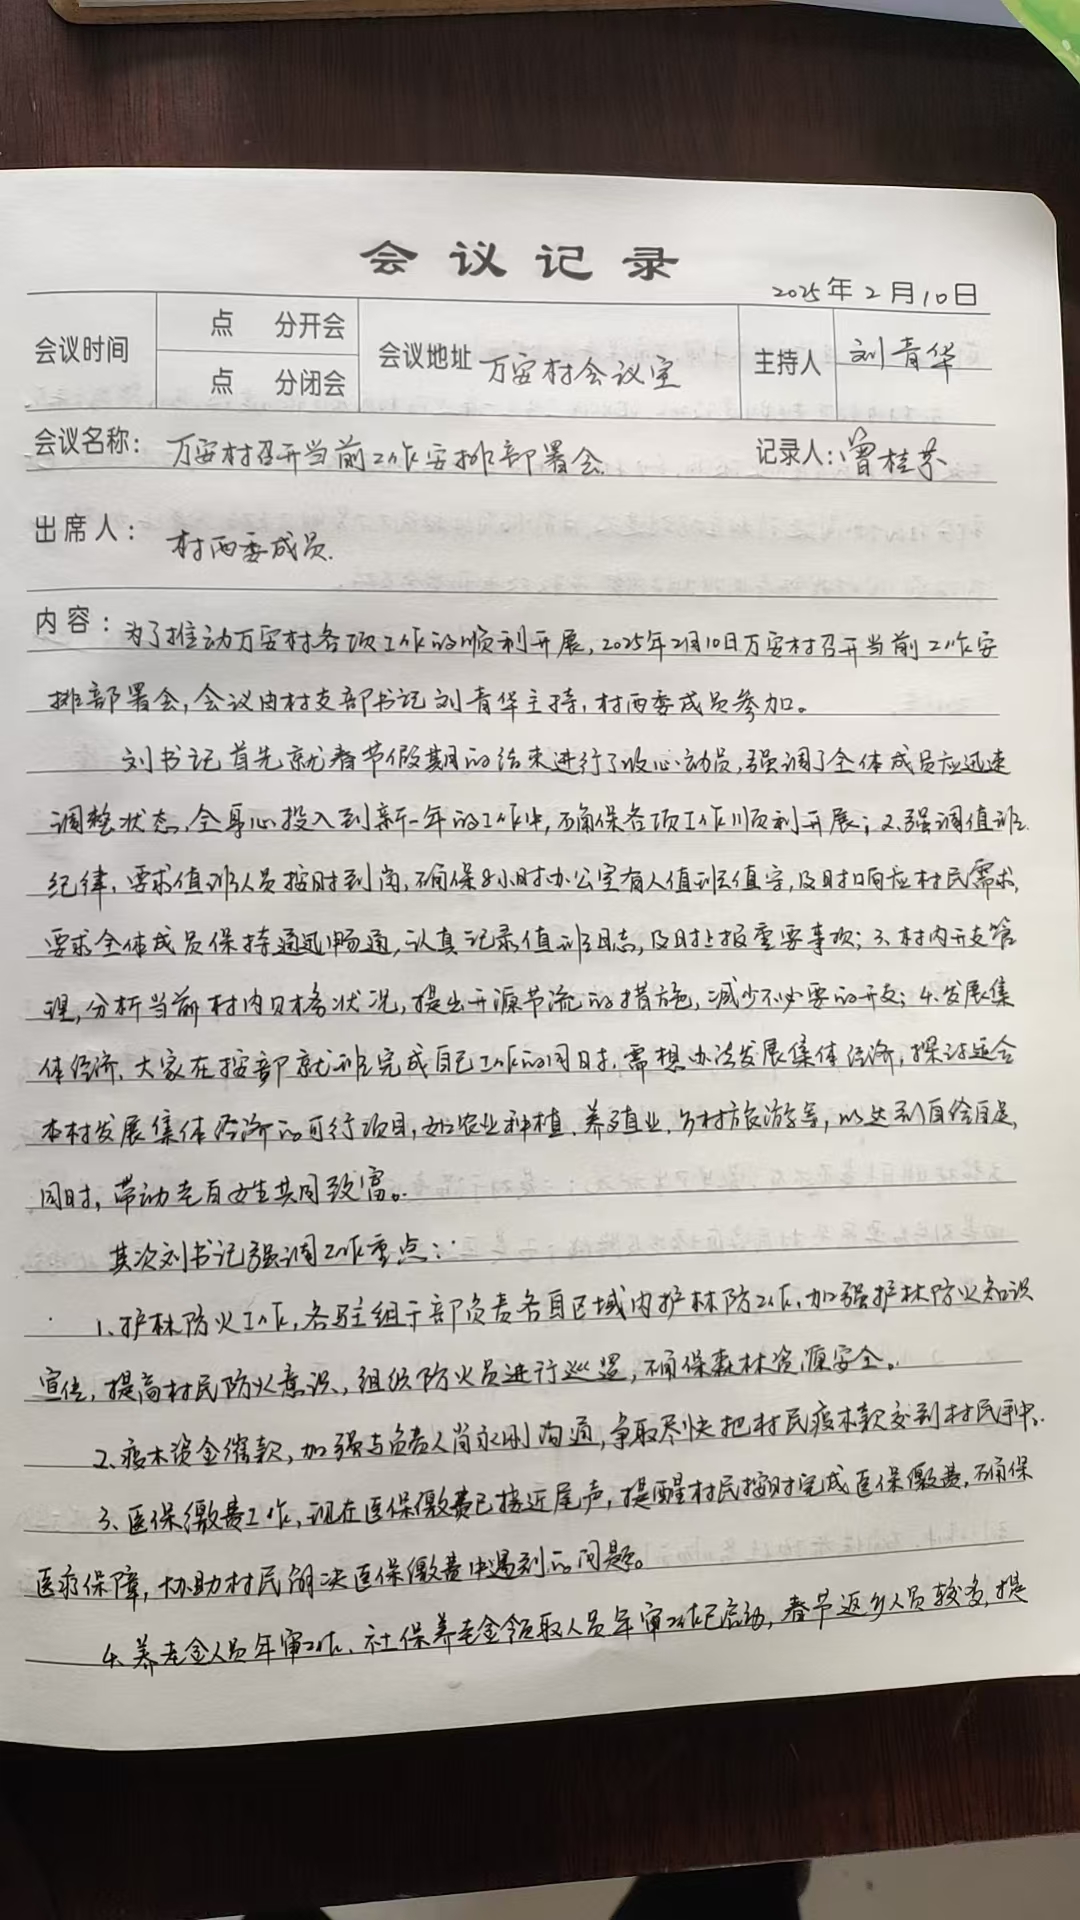 会议记录
2025年2月10日
会议时间 点 分开会 会议地址 万安村会议室 主持人 刘青华
点 分闭会
会议名称: 万安村召开当前工作安排部署会. 记录人: 曾桂芬
出席人: 村两委成员.
内容: 为了推动万安村各项工作的顺利开展, 2025年2月10日万安村召开当前工作安
排部署会, 会议由村支部书记刘青华主持, 村两委成员参加。
刘书记首先就春节假期的结束进行了收心动员, 强调了全体成员应迅速
调整状态, 全身心投入到新一年的工作中, 确保各项工作顺利开展; 2.强调值班
纪律, 要求值班人员按时到岗, 确保8小时办公室有人值班值守, 及时响应村民需求,
要求全体成员保持通迅畅通, 认真记录值班日志, 及时上报重要事项; 3、村内开支管
理, 分析当前村内财务状况, 提出开源节流的措施, 减少不必要的开支; 4.发展集
体经济, 大家在按部就班完成自己工作的同时, 需想办法发展集体经济, 探讨适合
本村发展集体经济的可行项目, 如农业种植、养殖业、乡村旅游等, 以达到自给自足,
同时, 带动老百姓共同致富。
其次刘书记强调工作重点:
1、护林防火工作, 各驻组干部负责各自区域内护林防工作, 加强护林防火知识
宣传, 提高村民防火意识, 组织防火员进行巡逻, 确保森林资源安全。
2、疫木资金缩款, 加强与负责人肖永刚沟通, 争取尽快把村民疫木款交到村民手中.
3、医保缴费工作, 现在医保缴费已接近尾声, 提醒村民按时完成医保缴费, 确保
医疗保障, 协助村民解决医保缴费中遇到的问题。
4、养老金人员年审工作、社保养老金领取人员年审工作已启动, 春节返乡人员较多, 提